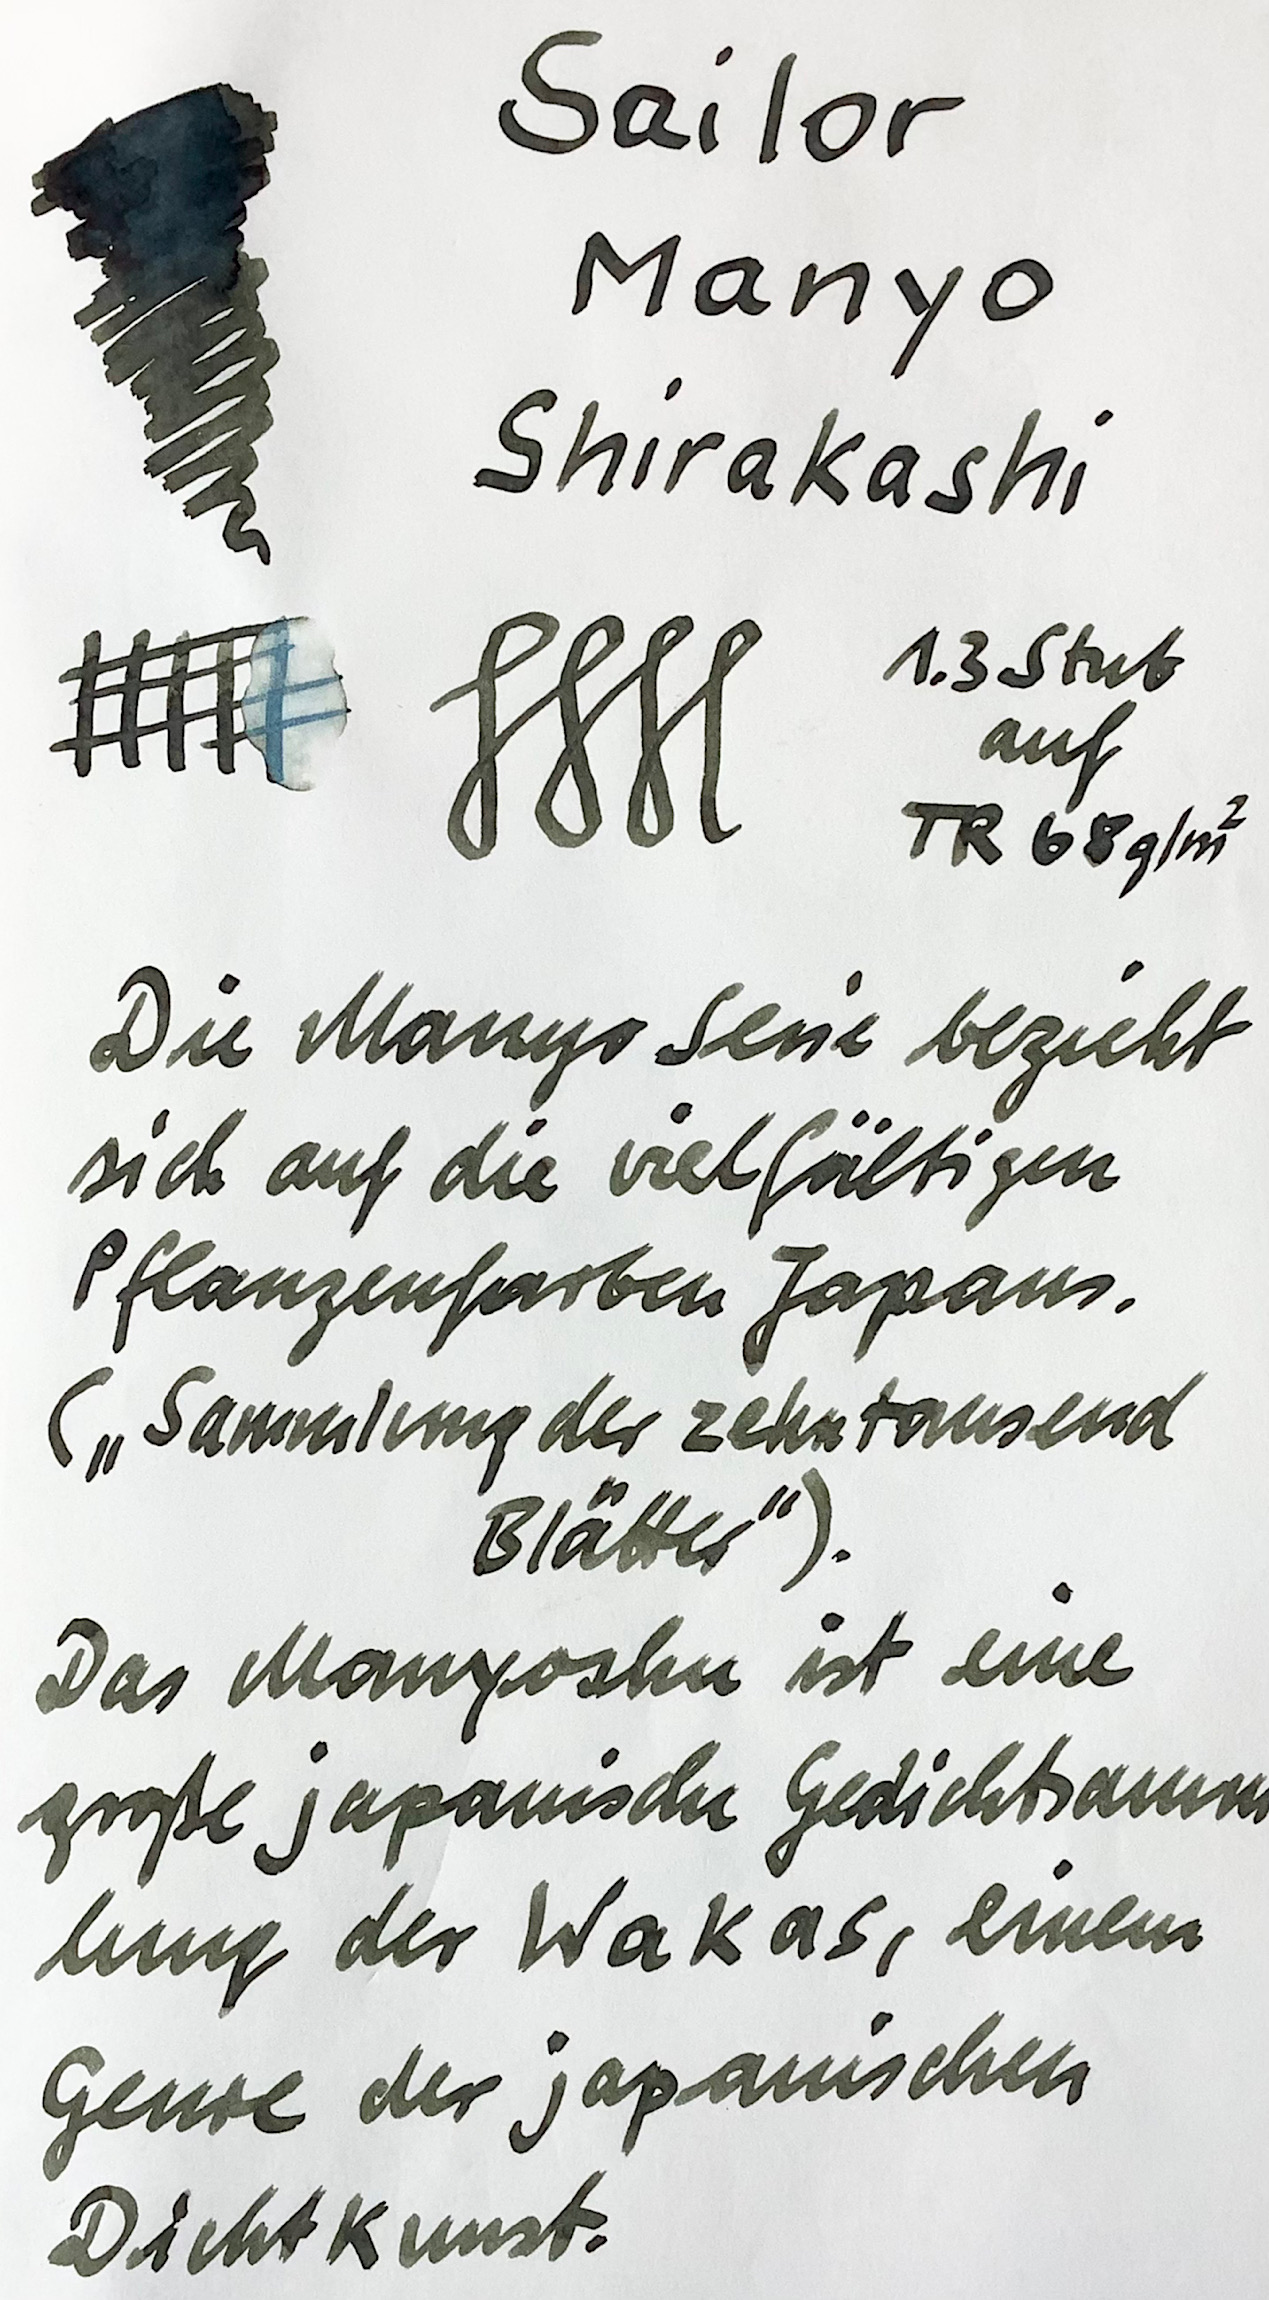 Sailor
Manyo
Shirakashi
1.3 Stub
auf
TR 68 g/m²
Die Manyo Serie bezieht
sich auf die vielfältigen
Pflanzenfarben Japans.
(„Sammlung der zehntausend
Blätter").
Das Manyoshu ist eine
große japanische Gedichtsamm
lung der Wakas, einem
Genre der japanischen
Dichtkunst.